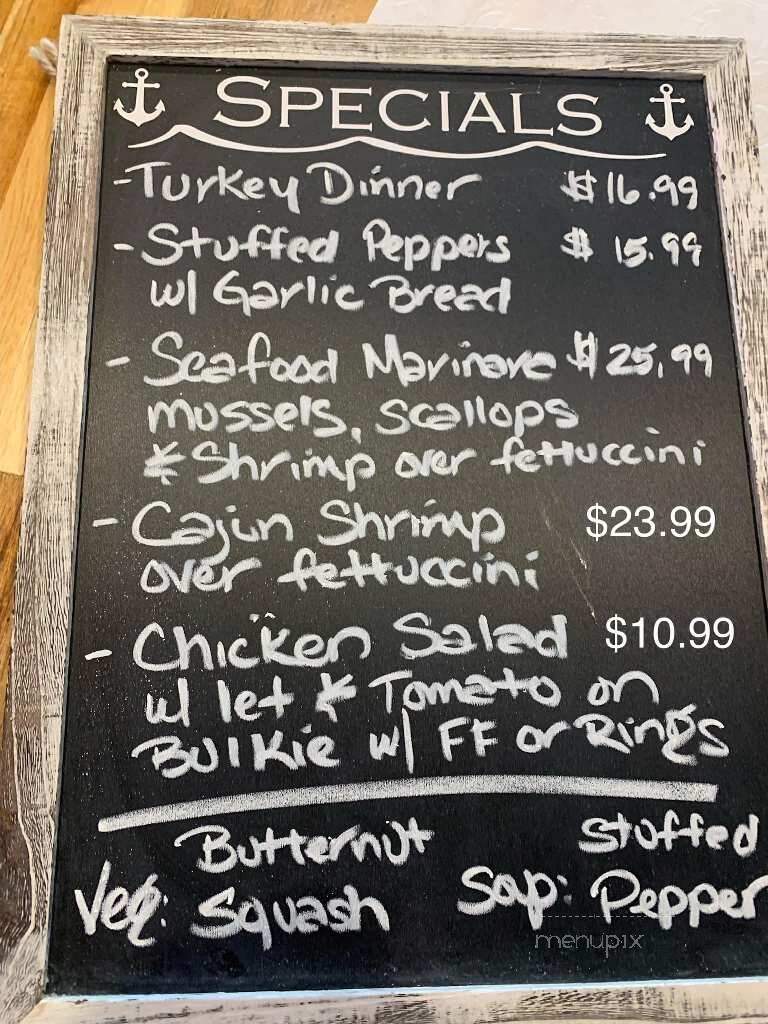 SPECIALS
- Turkey Dinner $16.99
- Stuffed Peppers $15.99
w/ Garlic Bread
- Seafood Marinara $25.99
mussels, scallops
& Shrimp over fettuccini
- Cajun Shrimp $23.99
over fettuccini
- Chicken Salad $10.99
w/ let & Tomato on
Bulkie w/ FF or Rings
Butternut Stuffed
Veg: Squash Soup: Pepper
menupix